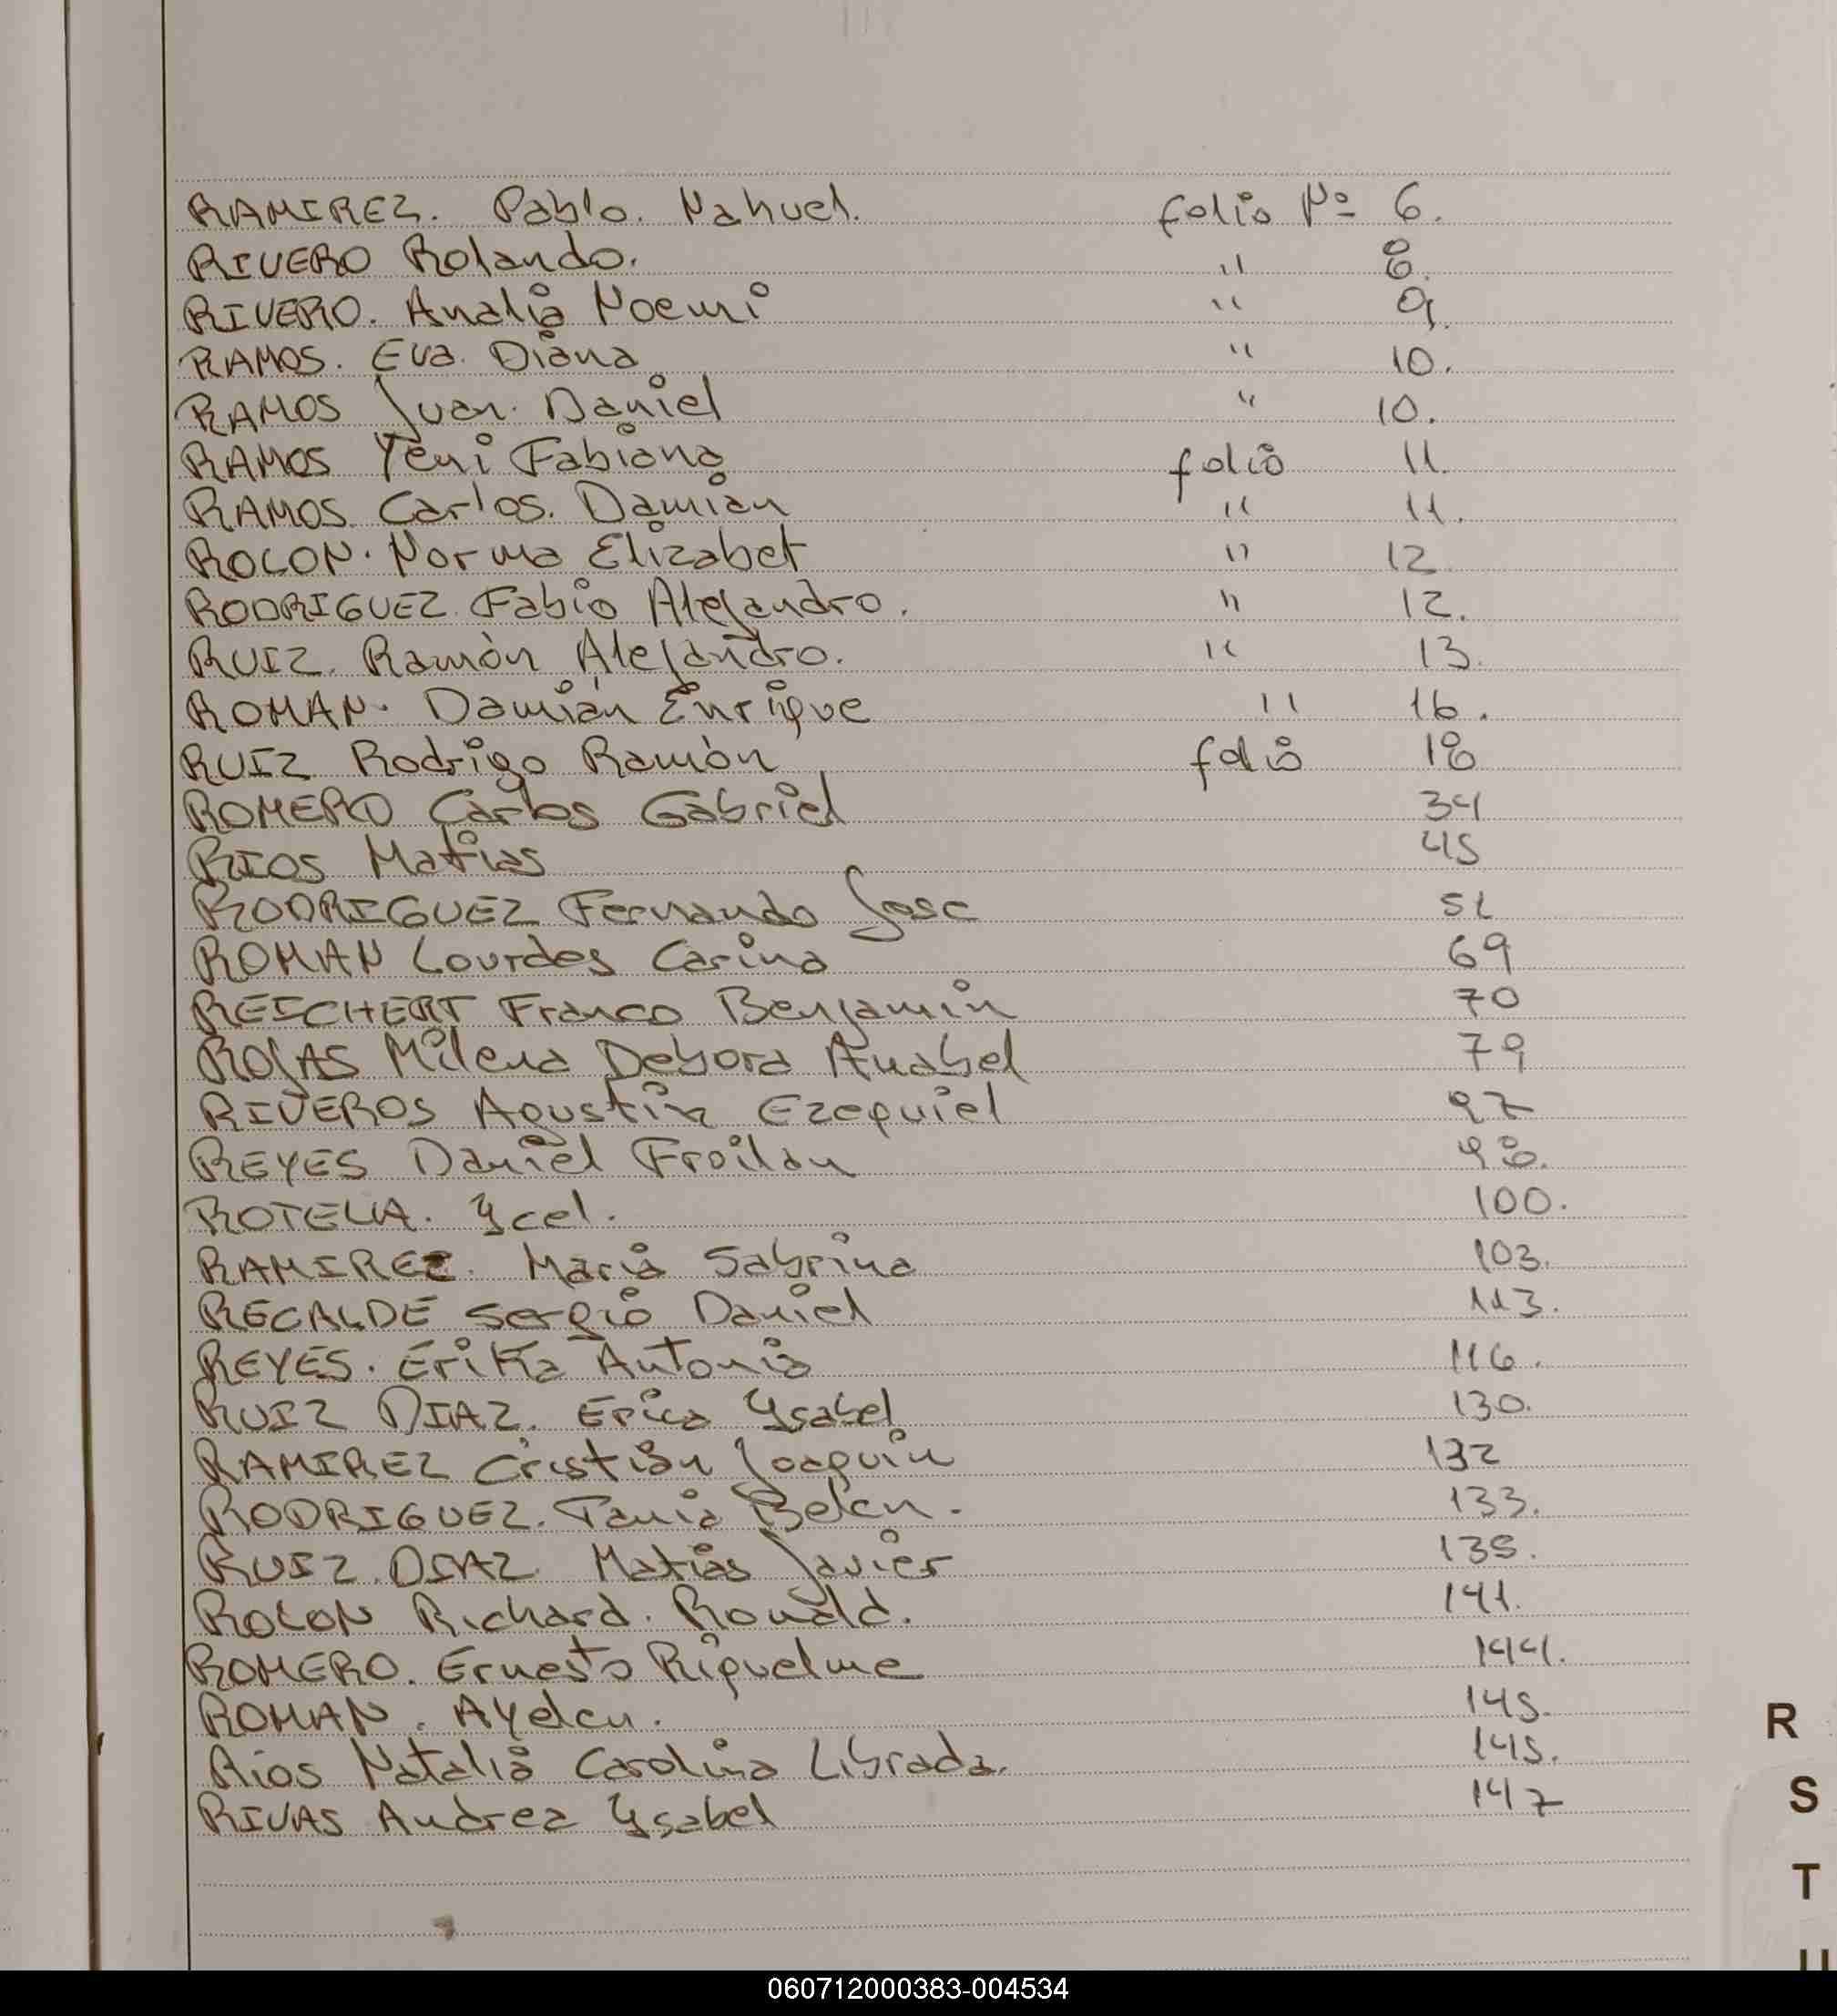 RAMIREZ. Pablo. Nahuel. folio Nº 6.
RIVERO Rolando. " 8.
RIVERO. Analia Noemi " 9.
RAMOS. Eva. Diana " 10.
RAMOS Juan. Daniel " 10.
RAMOS Yeni Fabiana folio 11.
RAMOS. Carlos. Damian " 11.
ROLON. Norma Elizabet " 12
RODRIGUEZ. Fabio Alejandro. " 12.
RUIZ. Ramòn Alejandro. " 13.
ROMAN. Damián Enrique " 16.
RUIZ Rodrigo Ramòn folio 18
ROMERO Carlos Gabriel 34
RIOS Matias 45
RODRIGUEZ Fernando Jose 51
ROMAN Lourdes Carina 69
REICHERT Franco Benjamin 70
ROJAS Milena Debora Anabel 79
RIVEROS Agustin Ezequiel 97
REYES Daniel Froilan 98.
ROTELA. Ycel. 100.
RAMIREZ. Maria Sabrina 103.
RECALDE Sergio Daniel 113.
REYES. Erika Antonia 116.
RUIZ DIAZ. Erica Ysabel 130.
RAMIREZ Cristian Joaquin 132
RODRIGUEZ. Tania Belen. 133.
RUIZ. DIAZ. Matias Javier 135.
ROLON Richard. Ronald. 141.
ROMERO. Ernesto Riquelme 144.
ROMAN. Ayelen. 145.
Rios Natalia Carolina Librada. 145.
RIVAS Andrea Ysabel 147
R
S
T
U
060712000383-004534